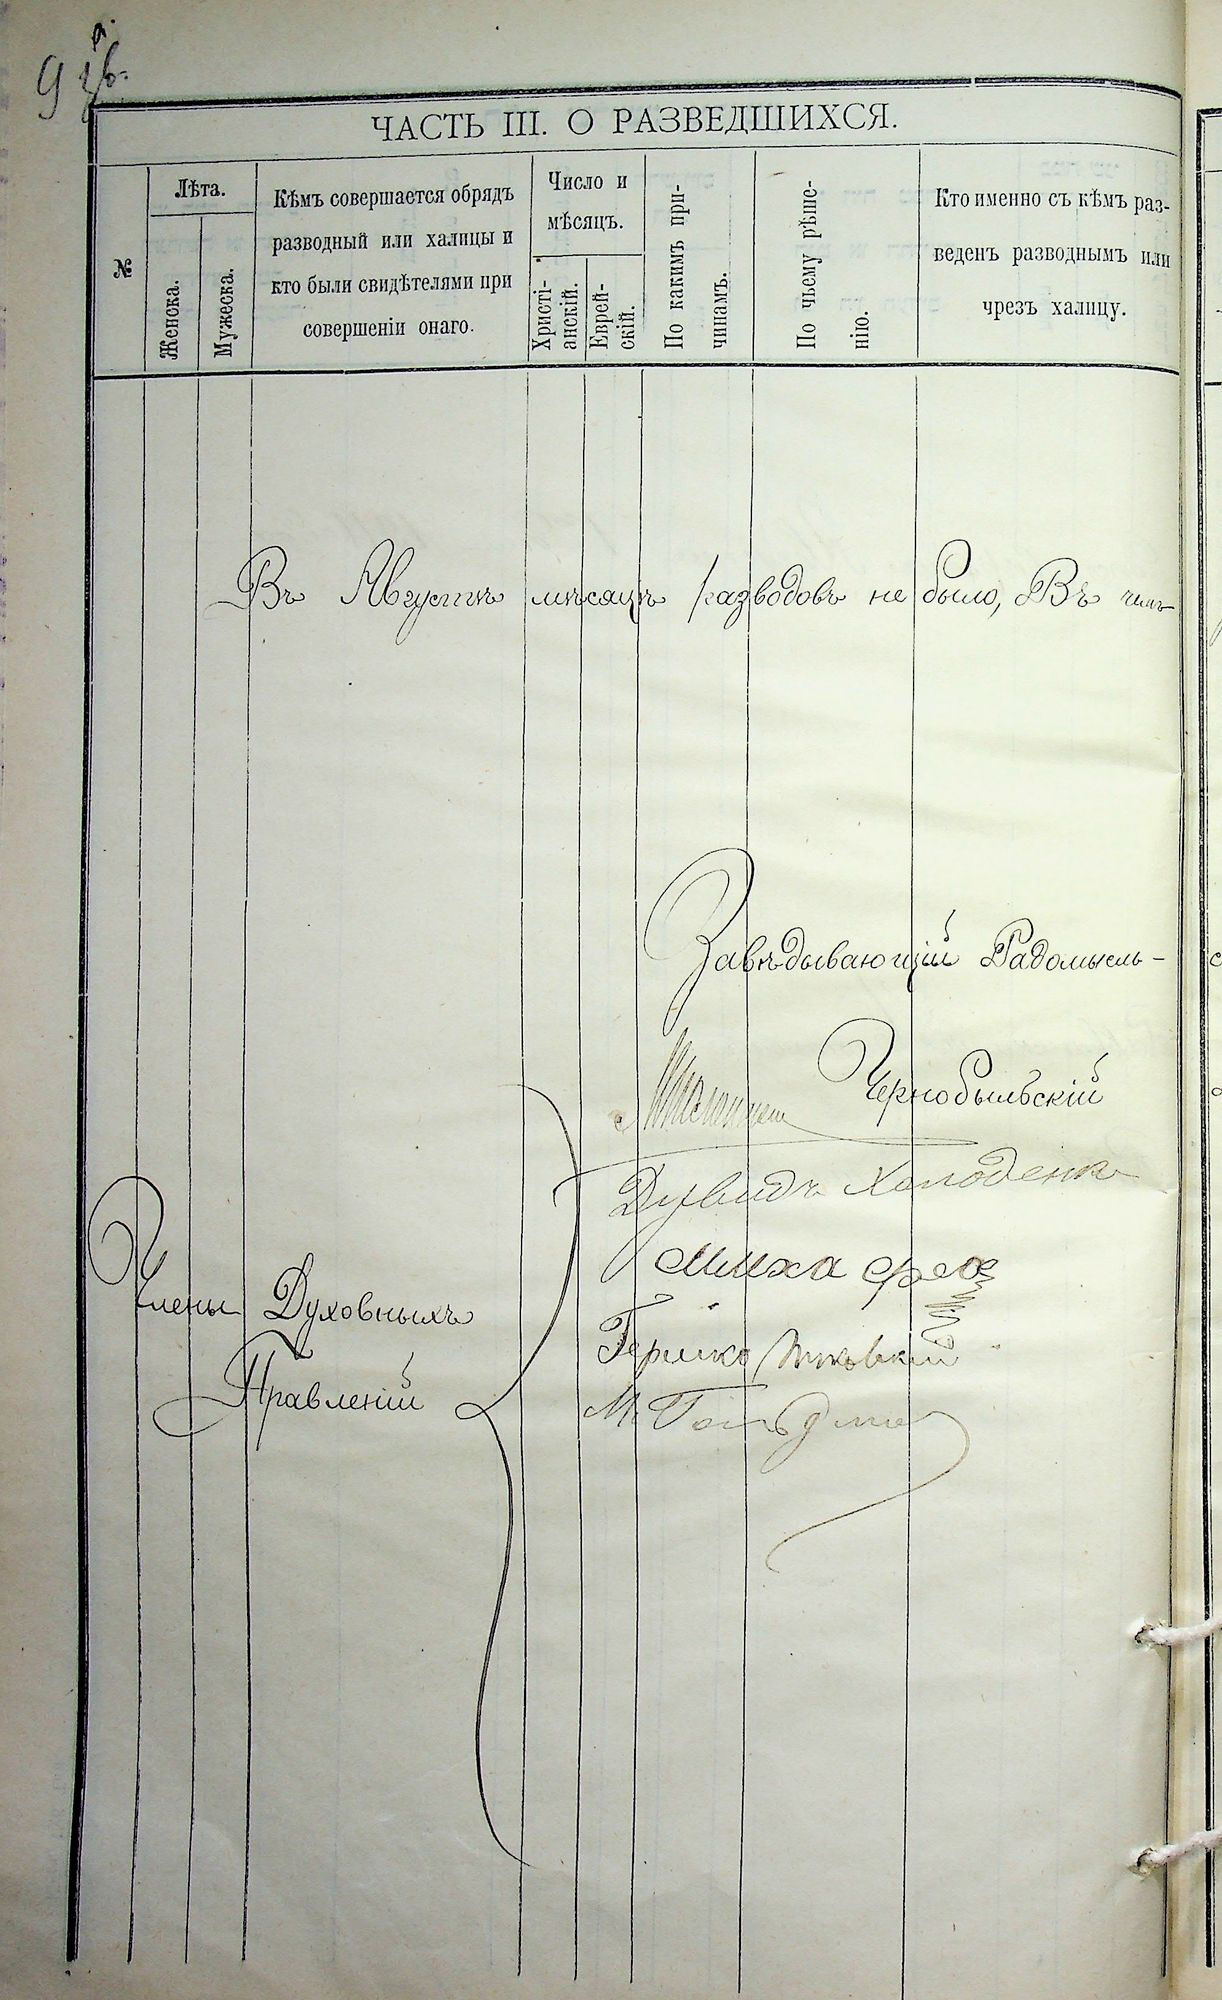 9
ЧАСТЬ III. О РАЗВЕДШИХСЯ.
№
Лѣта.
Женска.
Мужеска.
Кѣмъ совершается обрядъ
разводный или халицы и
кто были свидѣтелями при
совершеніи онаго.
Число и
мѣсяцъ.
Христі-
анскій.
Еврей-
скій.
По какимъ при-
чинамъ.
По чьему рѣше-
нію.
Кто именно съ кѣмъ раз-
веденъ разводнымъ или
чрезъ халицу.
Въ Августѣ мѣсяцѣ разводовъ не было, Въ чемъ
Завѣдывающій Радомысль-
Чернобыльскій
Дувидъ Холоденко
Члены Духовныхъ
Правленій
Гершко
М. Гольдман